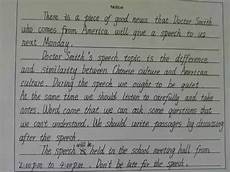 Notice
There is a piece of good news that Doctor Smith
who comes from America will give a speech to us
next Monday.
Doctor Smith's speech topic is the difference
and similarity between Chinese culture and American
culture. During the speech we ought to be quiet.
At the same time we should listen to carefully and take
notes. Word came that we can ask some questions that
we can't understand. We should write passages by discussing
after the speech.
The speech will be held in the school meeting hall from
2:00pm to 4:00pm. Don't be late for the speech.